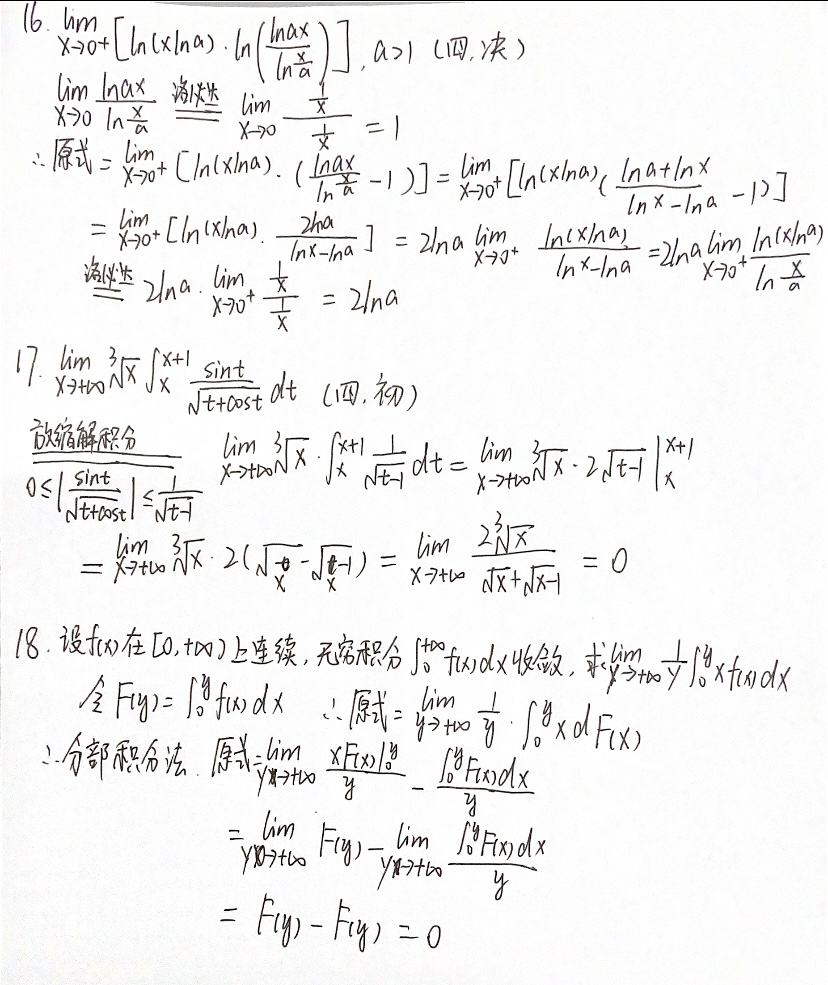 16. lim x→0⁺ [ln(xlna)·ln(lnax/ln(x/a))], a>1 (四,决)
lim x→0 lnax/ln(x/a) 洛必达 = lim x→0 (1/x)/(1/x) = 1
∴原式 = lim x→0⁺ [ln(xlna)·(lnax/ln(x/a) -1)] = lim x→0⁺ [ln(xlna)((lna+lnx)/(lnx-lna) -1)]
= lim x→0⁺ [ln(xlna)·2lna/(lnx-lna)] = 2lna lim x→0⁺ ln(xlna)/(lnx-lna) = 2lna lim x→0⁺ ln(xlna)/ln(x/a)
洛必达 = 2lna·lim x→0⁺ (1/x)/(1/x) = 2lna
17. lim x→+∞ ³√x ∫ₓ^(x+1) sint/√(t+cost) dt (四,初)
放缩解积分 0≤|sint/√(t+cost)|≤1/√(t-1) lim x→+∞ ³√x·∫ₓ^(x+1) 1/√(t-1) dt = lim x→+∞ ³√x·2√(t-1) |ₓ^(x+1)
= lim x→+∞ ³√x·2(√x-√(x-1)) = lim x→+∞ 2³√x/(√x+√(x-1)) = 0
18. 设f(x)在[0,+∞)上连续,无穷积分∫₀^(+∞) f(x)dx收敛,求lim y→+∞ 1/y ∫₀^y xf(x)dx
令F(y)=∫₀^y f(x)dx ∴原式= lim y→+∞ 1/y·∫₀^y xdF(x)
∴分部积分法.原式= lim y→+∞ xF(x)|₀^y/y - ∫₀^y F(x)dx/y
= lim y→+∞ F(y) - lim y→+∞ ∫₀^y F(x)dx/y
= F(y)-F(y)=0